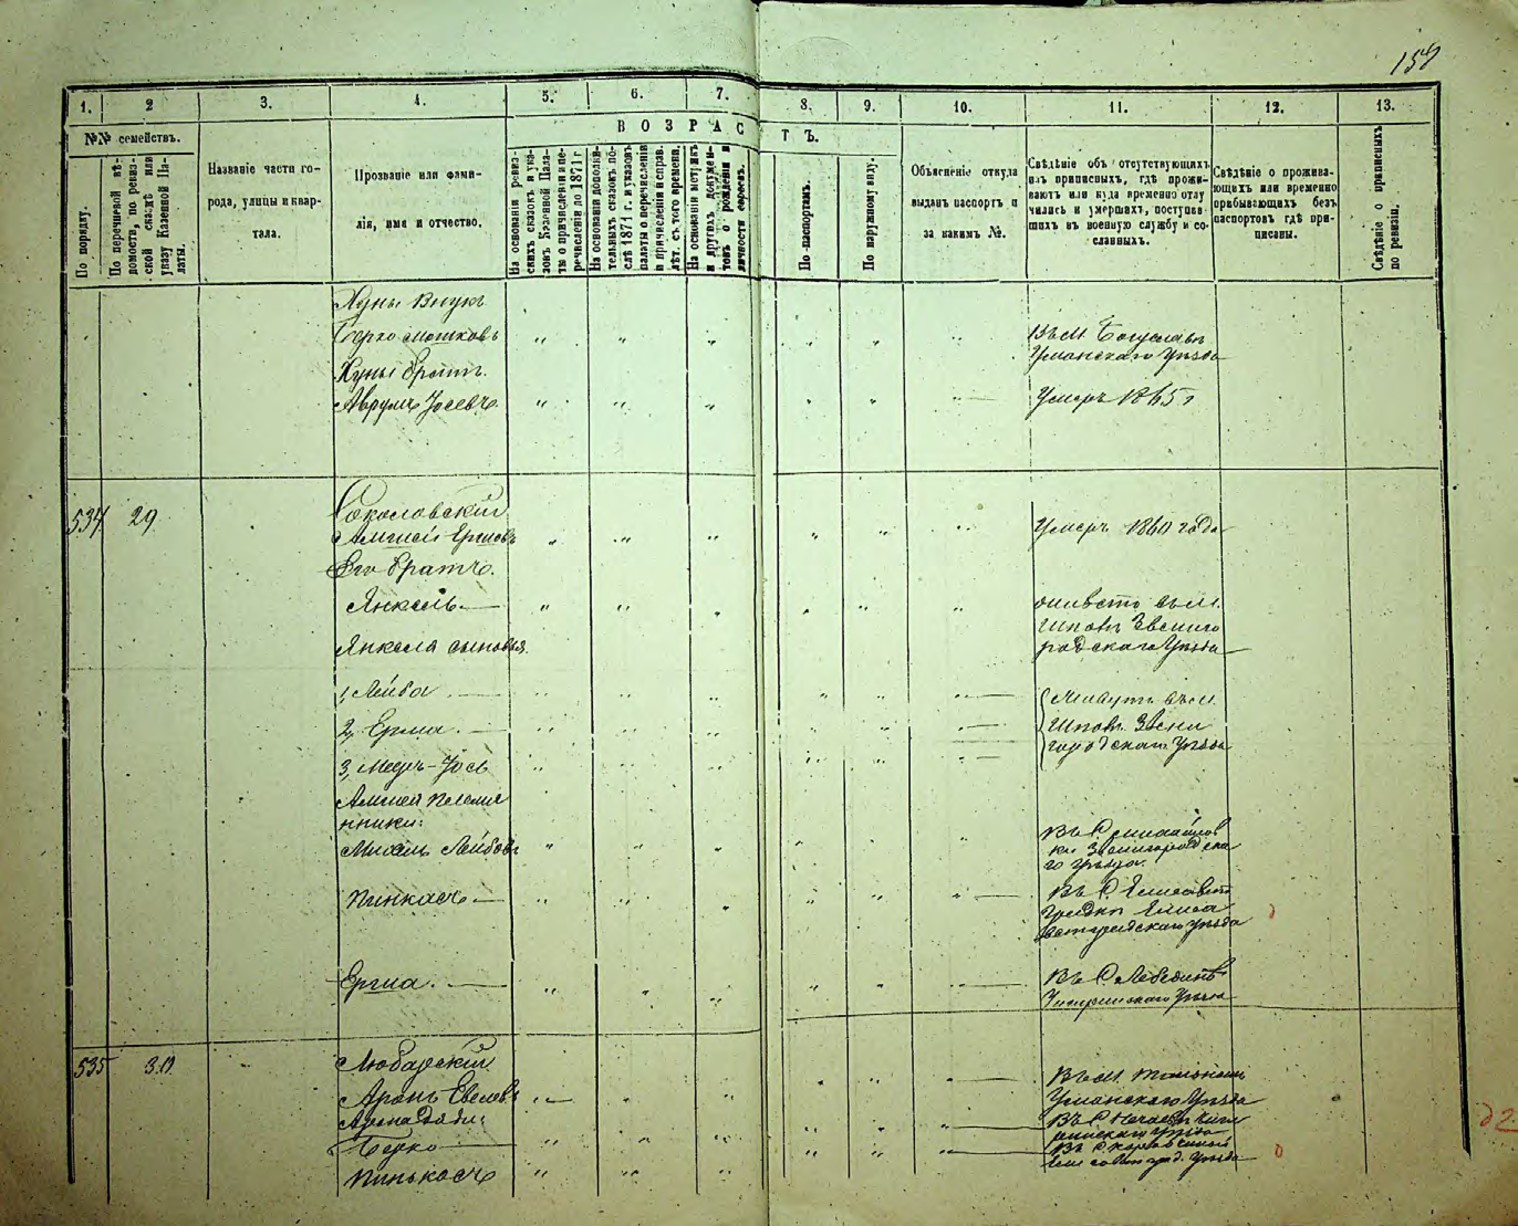 157
1. 2 3. 4. 5. 6. 7. 8. 9. 10. 11. 12. 13.
№№ семействъ.
ВОЗРАСТЪ.
По порядку.
По перечневой вѣ-
домости, по ревиз-
ской сказкѣ или
указу Казенной Па-
латы.
Названіе части го-
рода, улицы и квар-
тала.
Прозваніе или фами-
лія, имя и отчество.
На основаніи ревиз-
скихъ сказокъ и ука-
зовъ Казенной Пала-
ты о причисленіи и пе-
речисленіи до 1871 г.
На основаніи дополни-
тельныхъ сказокъ по-
слѣ 1871 г. и указовъ
палаты о перечисленіи
и причисленіи и справ.
лѣт. съ того времени.
На основаніи метрикъ
и другихъ докумен-
товъ о рожденіи и
личности евреевъ.
По паспортамъ.
По наружному виду.
Объясненіе откуда
выданъ паспортъ и
за какимъ №.
Свѣдѣніе объ отсутствующихъ
изъ приписныхъ, гдѣ прожи-
ваютъ или куда временно отлу
чились и умершихъ, поступив-
шихъ въ военную службу и со-
сланныхъ.
Свѣдѣніе о прожива-
ющихъ или временно
прибывающихъ безъ
паспортовъ гдѣ при-
писаны.
Свѣдѣніе о приписныхъ
по ревизіи.
Хуны Внукъ
Берко Мошковъ Въ М. Богуславѣ
Уманскаго Уѣзда
Хуны братъ.
Аврумъ Іосевъ Умеръ 1865 г
534 29 Соколовскій
Умеръ 1860 года
Его братъ.
Янкель въ М.
Шполѣ Звениго
родскаго Уѣзда
Янкеля сыновья
1, Лейба Живутъ въ М.
2, Ерма Шполѣ Звени
городскаго Уѣзда
3, Мееръ-Іось
племян
ники:
Михель Лейбовъ
Звенигородска
го Уѣзда
Пинкасъ Въ С. Елисавет
градки Елиса
ветградскаго Уѣзда
Ергиа Въ С. Лебединѣ
Чигиринскаго Уѣзда
535 30 Любарскій
Въ М. Тальномъ
Аронъ Евелевъ Уманскаго Уѣзда
Берко
Елисаветград. Уѣзда
Пинькасъ